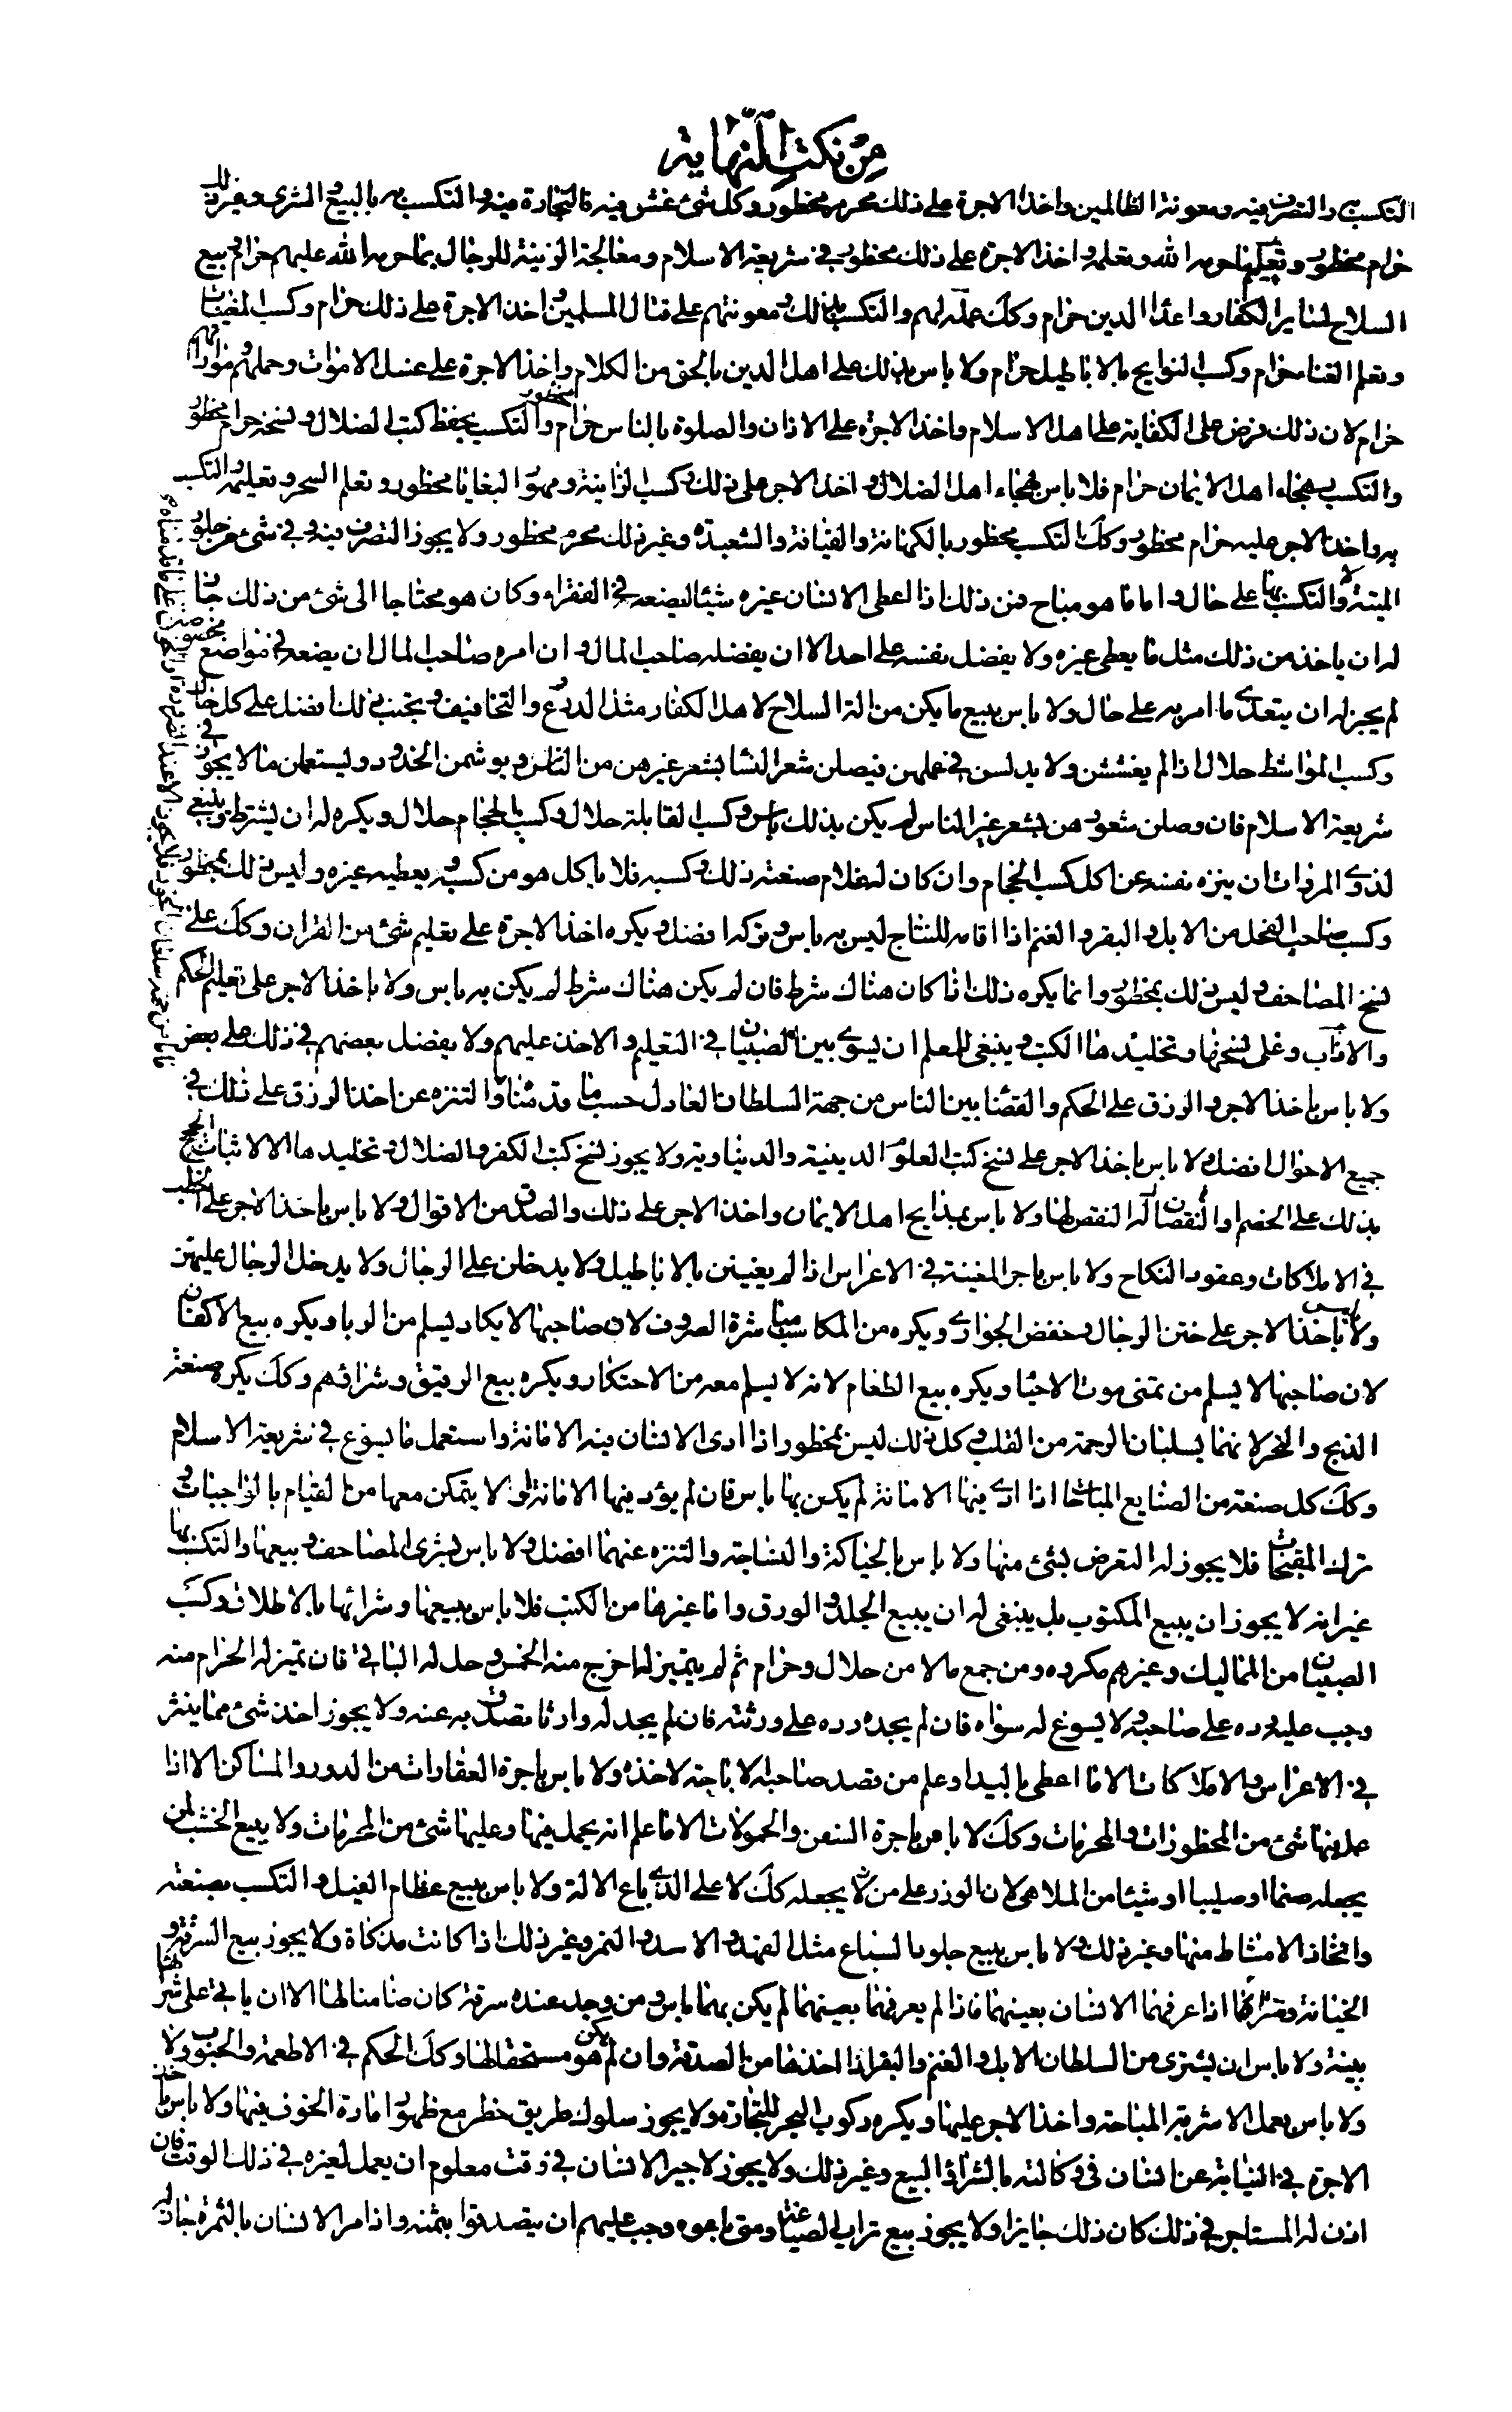 من نكت النهاية
التكسب به والتصرف فيه ومعونة الظالمين واخذ الاجرة على ذلك محرم محظور وكل شئ غش فيه فالتجارة فيه والتكسب به بالبيع والشرى وغير ذلك
حرام محظور وتعليم ما حرمه الله وتعلمه واخذ الاجرة على ذلك محظور في شريعة الاسلام ومعالجة الزينة للرجال بما حرمه الله عليهم حرام وبيع
السلاح لساير الكفار واعداء الدين حرام وكك عمله لهم والتكسب بذلك ومعونتهم على قتال المسلمين واخذ الاجرة على ذلك حرام وكسب المغنيات
وتعلم الغناء حرام وكسب النوايح بالاباطيل حرام ولا باس بذلك على اهل الدين بالحق من الكلام واخذ الاجرة على غسل الاموات وحملهم ومواراتهم
حرام لان ذلك فرض على الكفاية على اهل الاسلام واخذ الاجرة على الاذان والصلوة بالناس حرام والتكسب بحفظ كتب الضلال ونسخه حرام محظور
والتكسب بهجاء اهل الايمان حرام فلا باس بهجاء اهل الضلال واخذ الاجر على ذلك وكسب الزانية ومهور البغايا محظور وتعلم السحر وتعليمه والتكسب
به واخذ الاجر عليه حرام محظور وكك التكسب محظور بالكهانة والقيافة والشعبدة وغير ذلك محرم محظور ولا يجوز التصرف فيه وفي شئ من جلود
الميتة ولا التكسب بها على حال واما ما هو مباح فمن ذلك اذا اعطى الانسان غيره شيئا ليضعه في الفقراء وكان هو محتاجا الى شئ من ذلك جاز
له ان ياخذ من ذلك مثل ما يعطى غيره ولا يفضل نفسه على احد الا ان يفضله صاحب المال وان امره صاحب المال ان يضعه في مواضع مخصوصة
لم يجز له ان يتعدى ما امر به على حال ولا باس ببيع ما يكن من الة السلاح لاهل الكفار مثل الدروع والتخافيف وتجنب ذلك افضل على كل حال
وكسب المواشط حلال اذا لم يغششن ولا يدلسن في عملهن فيصلن شعر النساء بشعر غيرهن من الناس ويوشمن الخدود ويستعملن ما لا يجوز في
شريعة الاسلام فان وصلن شعورهن بشعر غير الناس لم يكن بذلك باس وكسب القابلة حلال وكسب الحجام حلال ويكره له ان يشترط وينبغي
لذوي المروات ان ينزه نفسه عن اكل كسب الحجام وان كان له غلام صنعته ذلك وكسبه فلا ياكل هو من كسبه ويعطيه غيره وليس ذلك بمحظور
وكسب صاحب الفحل من الابل والبقر والغنم اذا اقامه للنتاج ليس به باس وتركه افضل ويكره اخذ الاجرة على تعليم شئ من القران وكك على
نسخ المصاحف وليس ذلك بمحظور وانما يكره ذلك اذا كان هناك شرط فان لم يكن هناك شرط لم يكن به باس ولا باخذ الاجر على تعليم الحكم
والاداب وعلى نسخها وتخليدها الكتب وينبغي للمعلم ان يسوى بين الصبيان في التعليم والاخذ عليهم ولا يفضل بعضهم في ذلك على بعض
ولا باس باخذ الاجر والرزق على الحكم والقضاء بين الناس من جهة السلطان العادل حسب ما قدمناه والتنزه عن اخذ الرزق على ذلك في
جميع الاحوال افضل ولا باس باخذ الاجر على نسخ كتب العلوم الدينية والدنياوية ولا يجوز نسخ كتب الكفر والضلال وتخليدها الا لاثبات الحجج
بذلك على الخصم او النقض لها ولا باس بمدايح اهل الايمان واخذ الاجر على ذلك والصدق من الاقوال ولا باس باخذ الاجر على الخطب
في الاملاكات وعقود النكاح ولا باس باجر المغنية في الاعراس اذا لم يغنين بالاباطيل ولا يدخلن على الرجال ولا يدخل الرجال عليهن
ولا باس باخذ الاجر على ختن الرجال وخفض الجواري ويكره من المكاسب مباشرة الصروف لان صاحبها لا يكاد يسلم من الربا ويكره بيع الاكفان
لان صاحبها لا يسلم من تمنى موت الاحيا ويكره بيع الطعام لانه لا يسلم معه من الاحتكار ويكره بيع الرقيق وشرائهم وكك يكره صنعة
الذبح والنحر لانهما يسلبان الرحمة من القلب وكل ذلك ليس بمحظور اذا ادى الانسان فيه الامانة واستعمل ما يسوغ في شريعة الاسلام
وكك كل صنعة من الصنايع المباحة اذا ادى فيها الامانة لم يكن بها باس فان لم يؤد فيها الامانة او لا يتمكن معها من القيام بالواجبات و
ترك المقبحات فلا يجوز له التعرض لشئ منها ولا باس بالحياكة والنساجة والتنزه عنهما افضل ولا باس بشرى المصاحف وبيعها والتكسب بها
غير انه لا يجوز ان يبيع المكتوب بل ينبغي له ان يبيع الجلد والورق واما غيرها من الكتب فلا باس ببيعها وشرائها بالاطلاق وكسب
الصبيان من المماليك وغيرهم مكروه ومن جمع مالا من حلال وحرام ثم لم يتميز له اخرج منه الخمس وحل له الباقي فان تميز له الحرام منه
وجب عليه رده على صاحبه ولا يسوغ له سواه فان لم يجده رده على ورثته فان لم يجد له وارثا تصدق به عنه ولا يجوز اخذ شئ مما ينثر
في الاعراس والاملاكات الا ما اعطى باليد او علم من قصد صاحبه الاباحة لاخذه ولا باس باجرة العقارات من الدور والمساكن الا اذا
عمل فيها شئ من المحظورات والمحرمات وكك لا باس باجرة السفن والحمولات الا ما علم انه يحمل فيها وعليها شئ من المحرمات ولا يبيع الخشب لمن
يجعله صنما او صليبا او شيئا من الملاهي لان الوزر على من يجعله كك لا على الذي باع الالة ولا باس ببيع عظام الفيل والتكسب بصنعته
واتخاذ الامشاط منها وغير ذلك ولا باس ببيع جلود السباع مثل الفهد والاسد والنمر وغير ذلك اذا كانت مذكاة ولا يجوز بيع السرقة و
الخيانة وشرائها اذا عرفهما الانسان بعينهما فاذا لم يعرفهما بعينهما لم يكن بهما باس ومن وجد عنده سرقة كان ضامنا لها الا ان ياتي على شرائها
بينة ولا باس ان يشترى من السلطان الابل والغنم والبقر اذا اخذها من الصدقة وان لم يكن هو مستحقا لها وكك الحكم في الاطعمة والحبوب
ولا باس بعمل الاشربة المباحة واخذ الاجر عليها ويكره ركوب البحر للتجارة ولا يجوز سلوك طريق خطر مع ظهور امارة الخوف فيها ولا باس باخذ
الاجرة في النيابة عن انسان في وكالته بالشراء والبيع وغير ذلك ولا يجوز لاجير الانسان في وقت معلوم ان يعمل لغيره في ذلك الوقت فان
اذن له المستاجر في ذلك كان ذلك جايزا ولا يجوز بيع تراب الصياغة ومتى باعوه وجب عليهم ان يتصدقوا بثمنه واذا مر الانسان بالثمرة جاز له